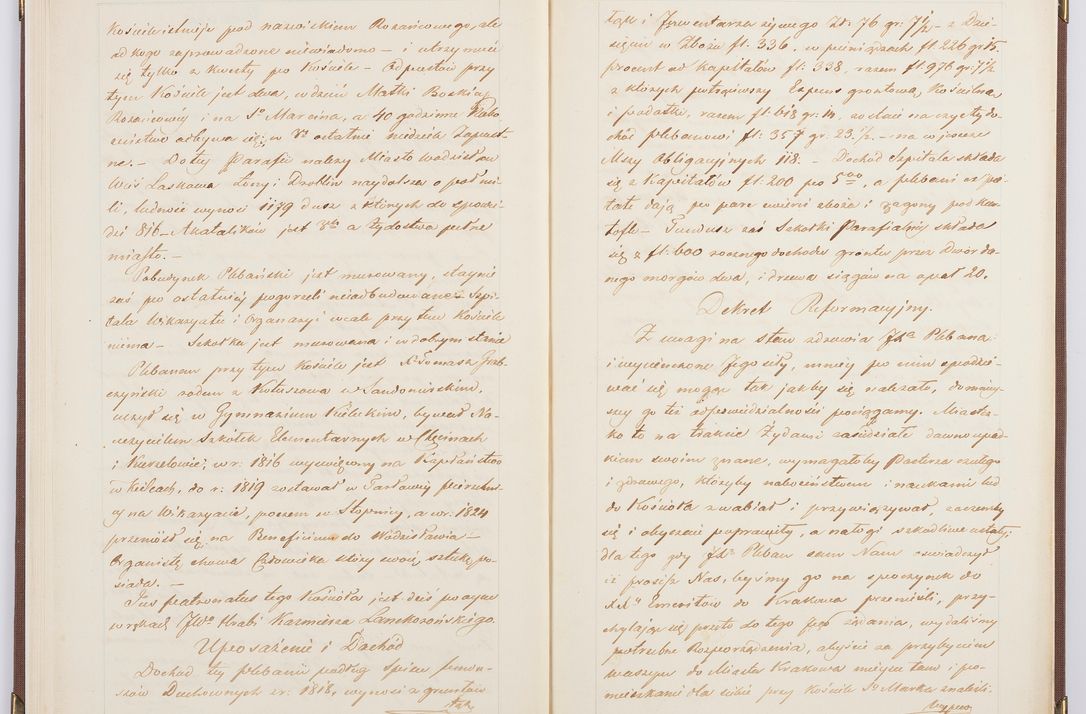 Kościele istnieje pod nazwiskiem Rożańcowego, ale
od kogo zaprowadzone niewiadomo – i utrzymuie
się tylko z kwesty po Kościele – Odpustów przy
tym Kościele jest dwa, w dzień Matki Boskiey
Rożańcowéy i na Sº Marcina, a 40 godzinne Nabo
żeństwo odbywa się w 3 ostatnie niedziele Zapust
ne. – Do tey Parafii należy Miasto Wodzisław
Wieś Laskowa Łany i Droblin naydalsza o pół mi
li, ludność wynosi 1179 dusz z których do spowie
dzi 816 – Akatolików jest 3ch a żydostwa pełne
miasto. –
Pobudynek Plebański jest murowany, stayni
zaś po ostatniey pogorzeli nieodbudowane – Szpi
tala Wikaryatu i Organaryi wcale przy tem Kościele
niema – Szkołka jest murowana i w dobrym stanie
Plebanem przy tym Kościele jest X Tomasz Grab
czyński rodem z Kotuszowa w Sandomirskiem,
uczył się w Gymnazium Kieleckiem, bywał Na
uczycielem Szkółek Elementarnych w Chęcinach
i Kurzelowie, w r: 1816 wyswięcony na Kapłaństwo
w Kielcach, do r: 1819 zostawał w
cy na Wikaryacie, poczem w Stopnicy, a w r: 1824
przeniósł się na Beneficium do Wodzisławia –
Organistę chowa Człowieka który swoię sztukę po-
siada. –
Jus patronatus tego Kościoła jest dziś
w rękach JWº Hrabi Kazmierza Lanckorońskiego.
Uposażenie i Dochód
Dochód téy Plebanii podług spisu fundu-
szów Duchownych z r: 1818, wynosi z gruntów
tak
tak i Inwentarza żywego Zł: 76 gr: 7½ – z Dzie-
sięcin w Zbożu fl. 336, w pieniądzach fl. 226 gr 15.
Procent od Kapitałów fl: 338, razem fl. 976 gr: 7½
z których potrąciwszy Expens gruntową, Kościelna
i podatki, razem fl: 618 gr: 14, zostaie na czysty do-
chód Plebanowi fl: 357 gr: 23.½ – ma w
Mszy Obligacyjnych 118. – Dochód Szpitala składa
się z Kapitałów fl. 200 po 5 , a plebani
dają po parę ćwierci zboża i zagony pod kar
tofle – Fundusz zaś Szkołki Parafialney składa
się z fl: 600 rocznego dochodu gruntu przez Dwór da
nego morgów dwa, i drzewa siągów na opał 20.
Dekret Reformacyjny.
Z uwagi na stan zdrowia JXa Plebana
i wycieńczone Jego siły, mniéy po nim spodzie-
wać się mogąc tak jakby się należało,
szey go też odpowiedzialności pociągamy. Miastecz
ko to na trakcie Żydami zasiedziałe dawno upad
kiem swoim znane, wymagałoby Pasterza czułego
i zdrowego, któryby nabożeństwem i naukami lud
do Kościoła zwabiał i przywiązywał, ażeby
się i obyczaie poprawiły, a nałogi szkodliwe ustały,
dla tego gdy JXº Pleban sam Nam oswiadczył
iż prosi Nas, byśmy go na spoczynek do
XXº Emerytów do Krakowa przenieśli, przy-
chylając się przeto do tego Jego żądania, wydaliśmy
potrzebne Rozporządzenia, abyście za przybyciem
waszym do Miasta Krakowa mieysce tam i po-
mieszkanie dla siebie przy Kościele Sº Marka znaleźli.